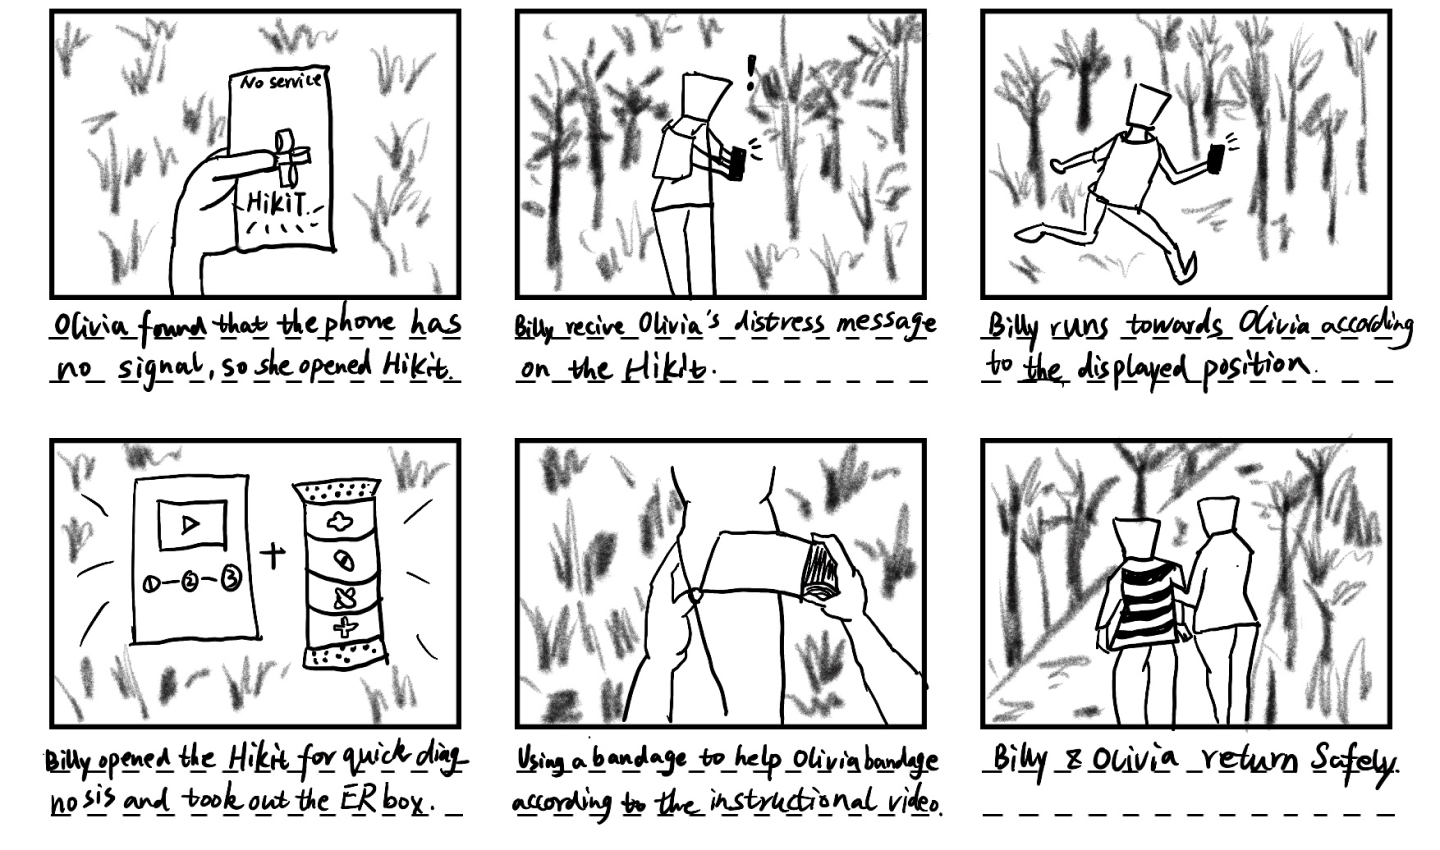 No service
HikiT
Olivia found that the phone has
no signal, so she opened Hikit.
!
Billy recive Olivia's distress message
on the Hikit.
Billy runs towards Olivia according
to the displayed position.
1-2-3
Billy opened the Hikit for quick diag
nosis and took out the ER box.
Using a bandage to help Olivia bandage
according to the instructional video.
Billy & Olivia return Safely.